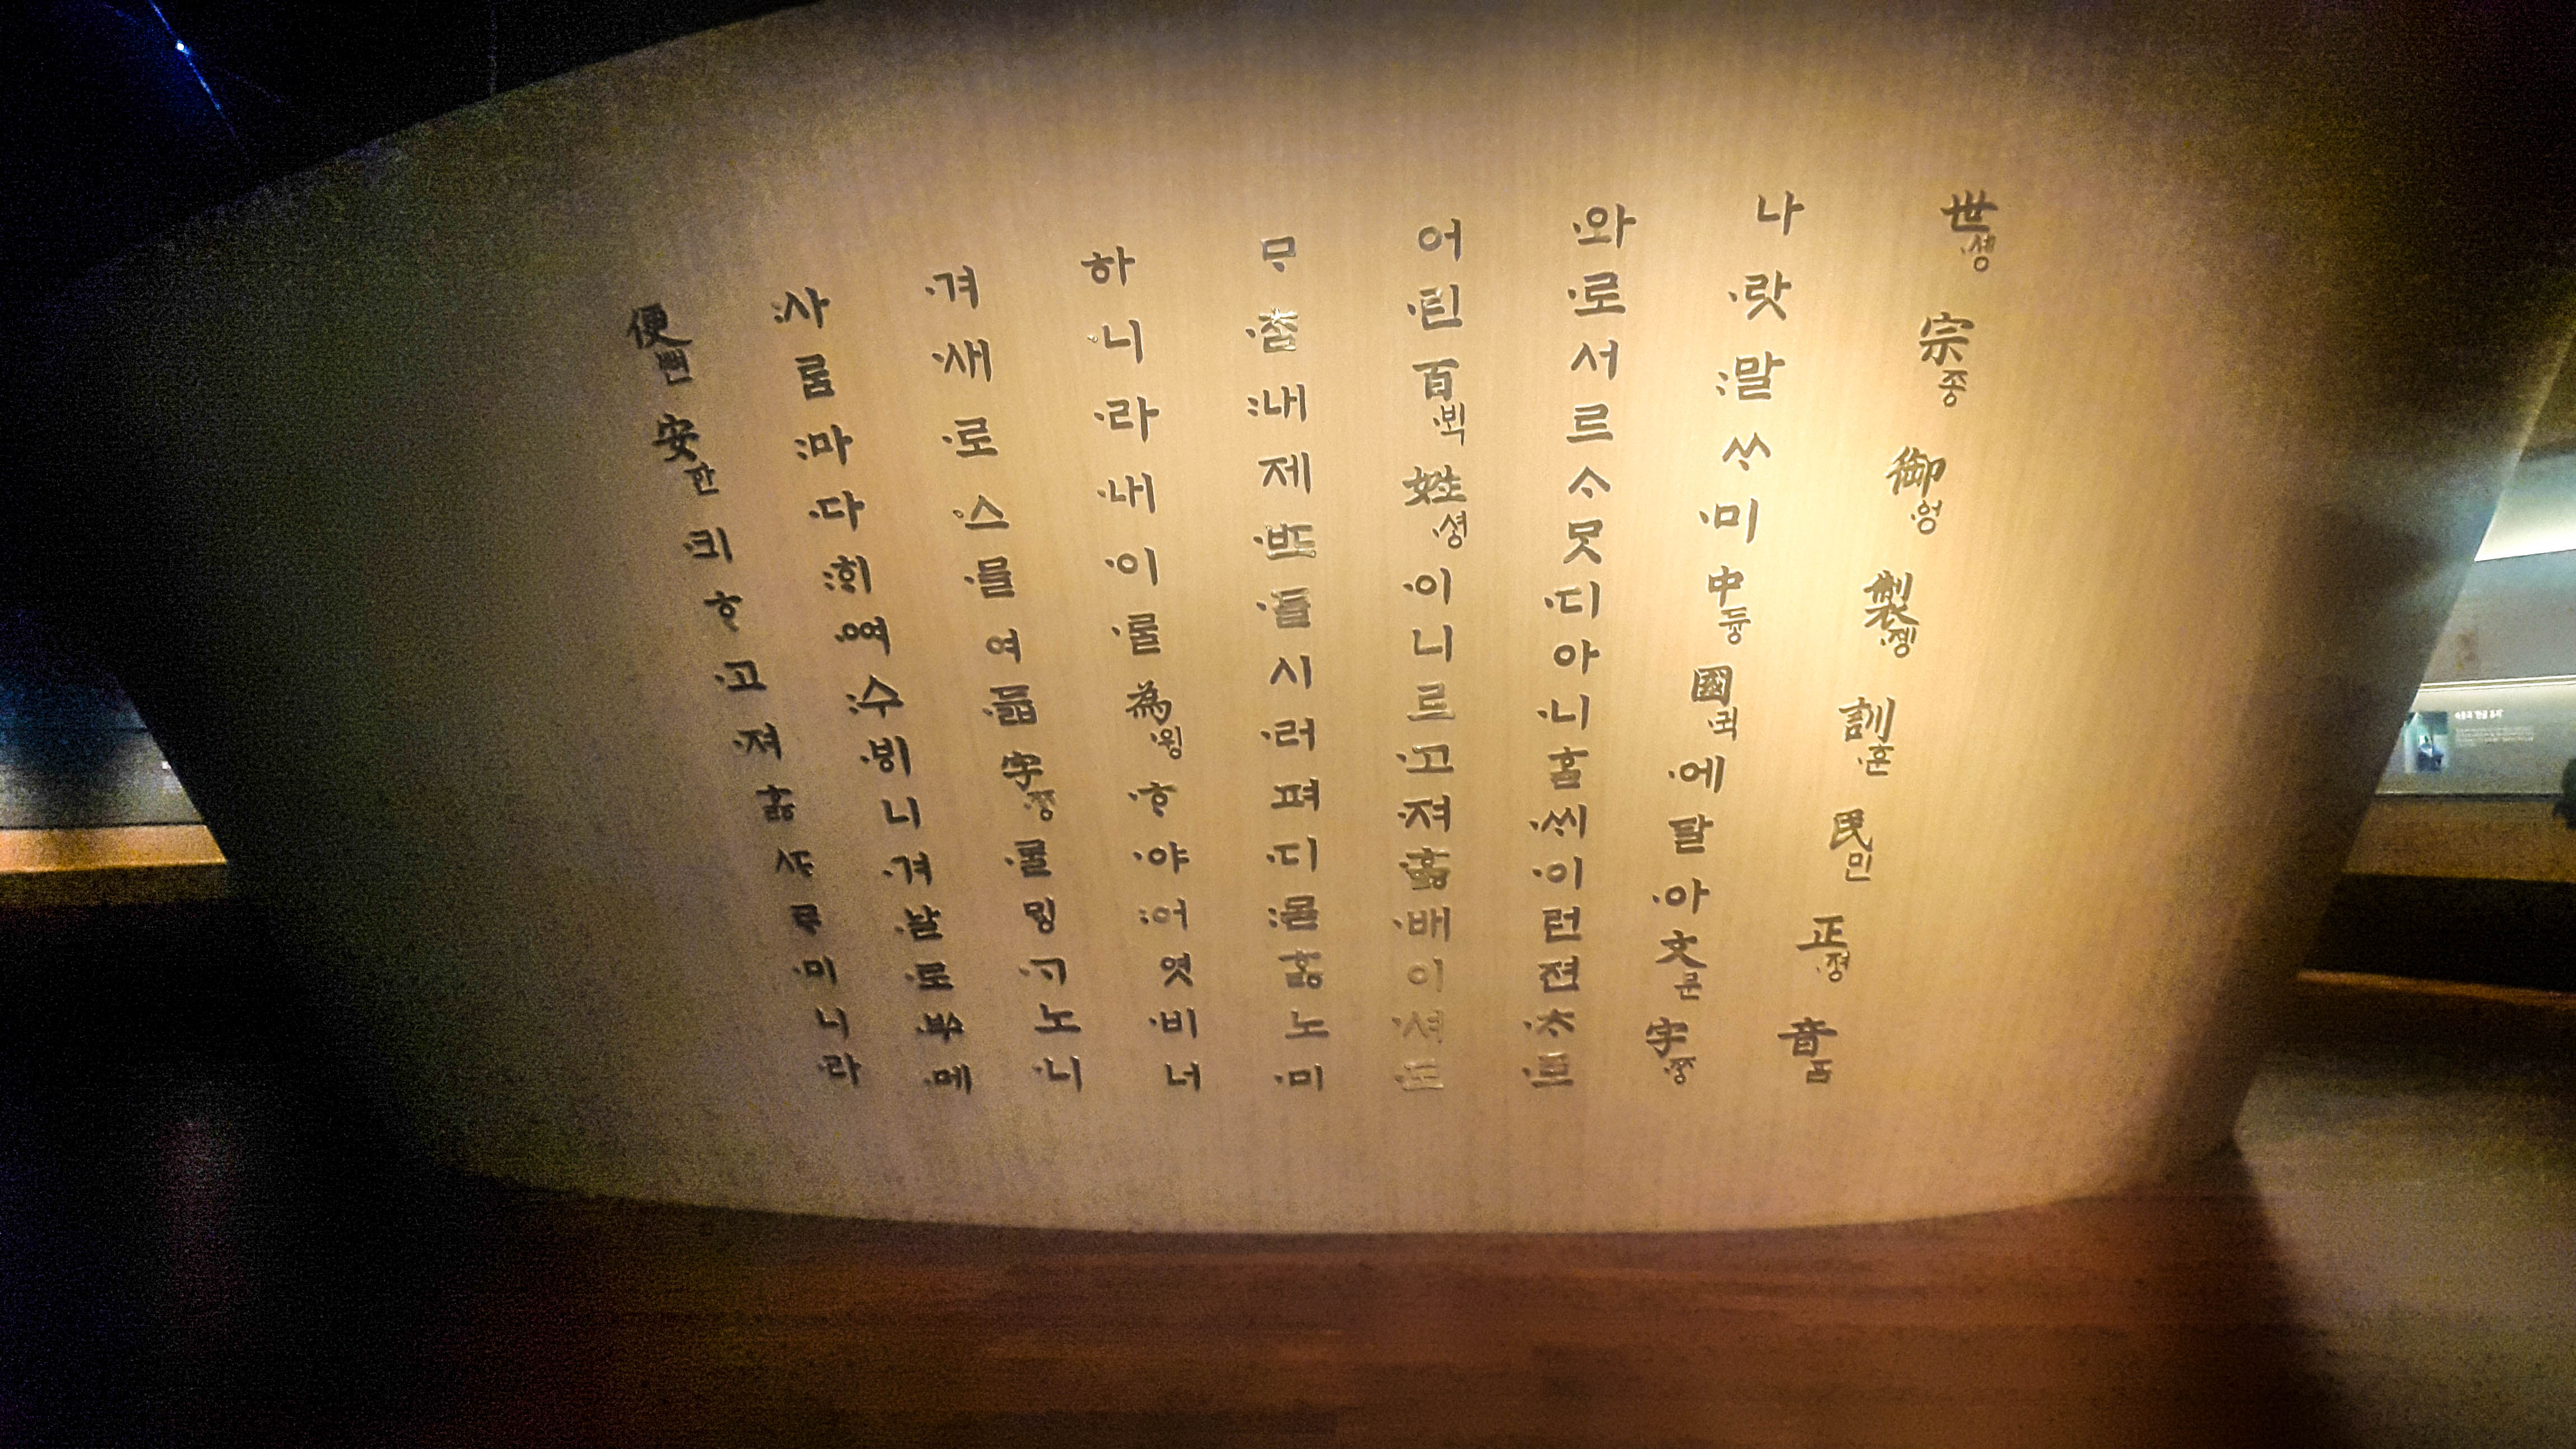 世·솅宗종御·엉製·졩訓·훈民민正·졍音ᅙᅳᆷ
나·랏:말ᄊᆞ·미中듕國·귁·에달·아文문字·ᄍᆞᆼ
·와·로서르ᄉᆞᄆᆞᆺ·디아·니ᄒᆞᆯ·ᄊᆡ·이런젼·ᄎᆞ·로
어·린百·ᄇᆡᆨ姓·셩·이니르·고·져·호ᇙ·배이·셔·도
ᄆᆞ·ᄎᆞᆷ:내제·ᄠᅳ·들시·러펴·디:몯ᄒᆞᇙ노·미
하·니·라·내·이·ᄅᆞᆯ為·윙·ᄒᆞ·야:어엿·비너
·겨·새·로·스·믈여·듧字·ᄍᆞᆼ·ᄅᆞᆯᄆᆡᇰ·ᄀᆞ노·니
:사ᄅᆞᆷ:마·다:ᄒᆡ·ᅇᅧ:수·ᄫᅵ니·겨·날·로·ᄡᅮ·메
便뼌安ᅙᅡᆫ·킈ᄒᆞ·고·져ᄒᆞᇙᄯᆞᄅᆞ·미니·라